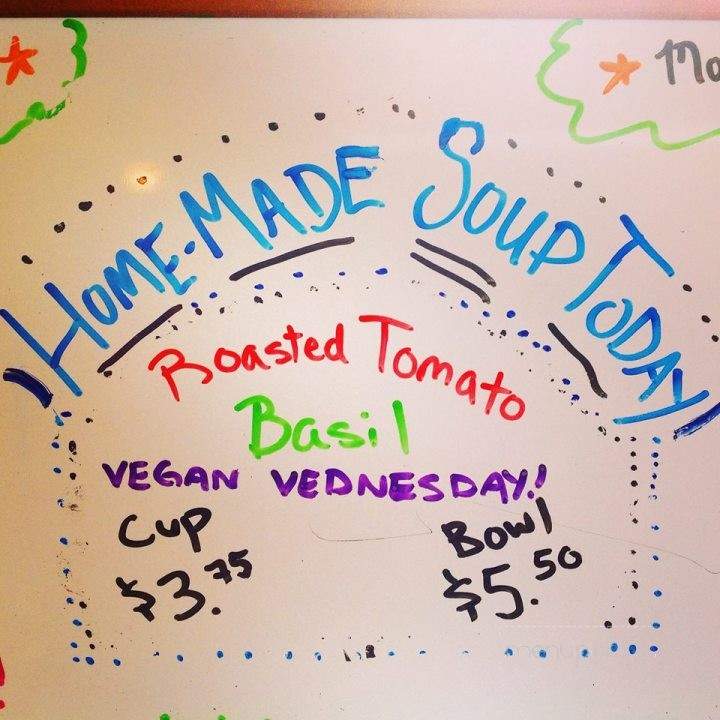 Mo
HOME-MADE SOUP TODAY
Roasted Tomato
Basil
VEGAN VEDNESDAY!
Cup Bowl
$3.75 $5.50
menupix